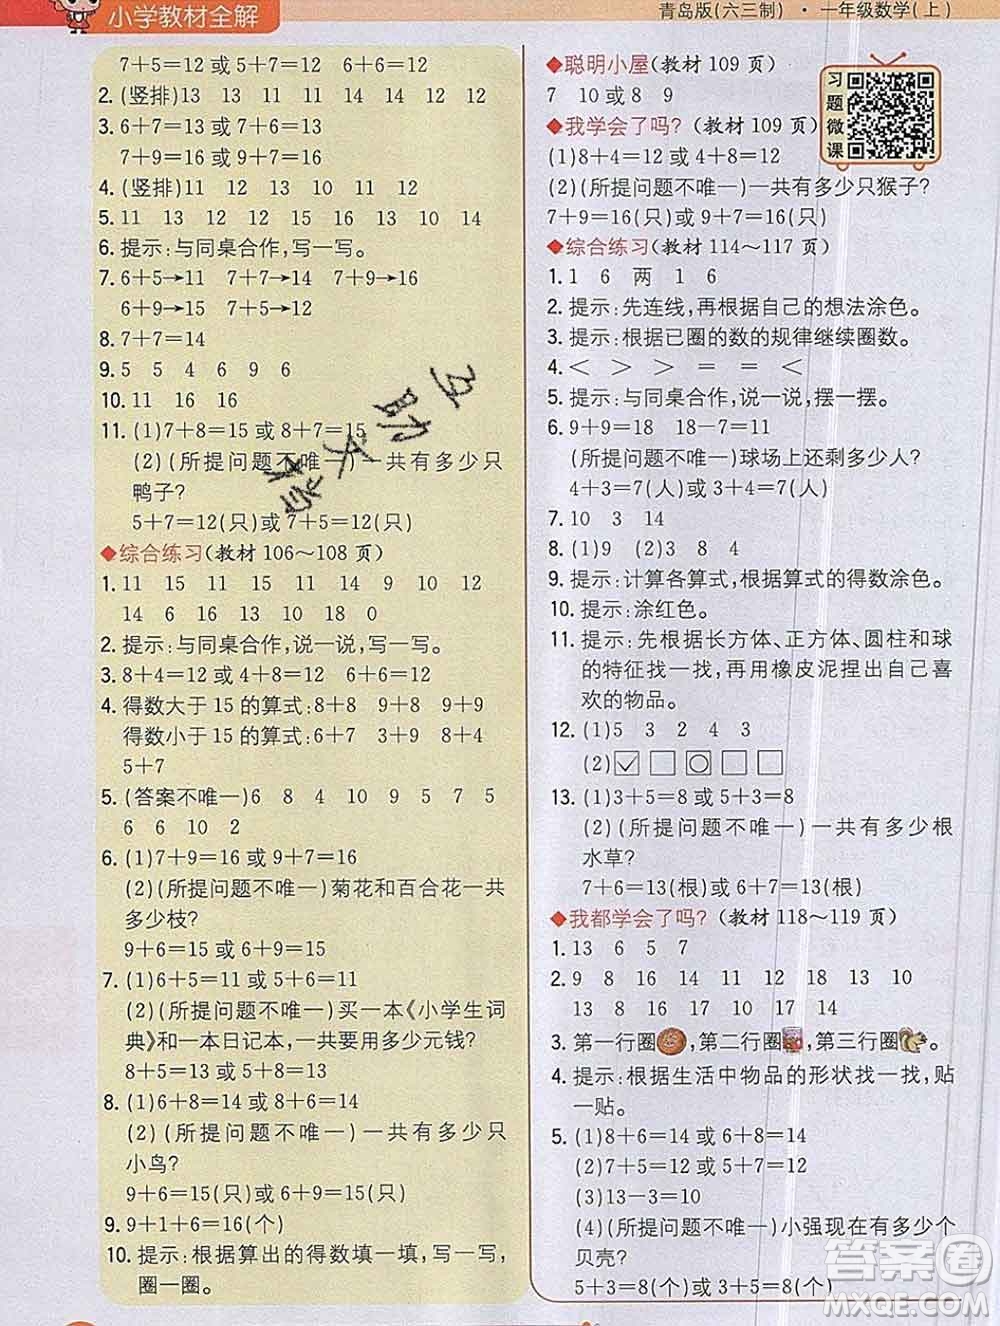 小学教材全解
青岛版(六三制) · 一年级数学(上)
7+5=12 或 5+7=12 6+6=12
2. (竖排)13 13 11 11 11 12 12
3. 6+7=13 或 7+6=13
7+9=16 或 9+7=16
4. (竖排) 11 12 13 12 16
5. 11 13 12 12 16 13 10 14
6. 提示:与同桌合作,写一写。
7. 6+5→11 7+7→14 7+9→16
6+7→13
8. 7+7=14
9. 5 5 4 6 9 6
10. 11 16 16
11. (1)7+8=15 或 8+7=15
(2)(所提问题不唯一)一共有多少只
鸭子?
5+7=12(只)或 7+5=12(只)
◆综合练习(教材 106～108 页)
1. 11 15 11 15 11 10 12
14 6 10 12 18 0
2. 提示:与同桌合作,说一说,写一写。
3. 8+4=12 或 4+8=12 6+6=12
4. 得数大于 15 的算式:8+8 9+8 9+9
得数小于 15 的算式:6+7 3+9 8+4
5+7
5. (答案不唯一)6 8 4 10 9 5 7 5
6 6 10 2
6. (1)7+9=16 或 9+7=16
(2)(所提问题不唯一)菊花和百合花一共
多少枝?
9+6=15 或 6+9=15
7. (1)6+5=11 或 5+6=11
(2)(所提问题不唯一)买一本《小学生词
典》和一本日记本,一共要用多少元钱?
8+5=13 或 5+8=13
8. (1)6+8=14 或 8+6=14
(2)(所提问题不唯一)一共有多少只
小鸟?
9+6=15(只)或 6+9=15(只)
9. 9+1+6=16(个)
10. 提示:根据算出的得数填一填,写一写,
圈一圈。
◆聪明小屋(教材 109 页)
7 10 或 8 9
◆我学会了吗?(教材 109 页)
(1)8+4=12 或 4+8=12
(2)(所提问题不唯一)一共有多少只猴子?
7+9=16(只)或 9+7=16(只)
习题微课
◆综合练习(教材 114～117 页)
1. 1 6 两 1 6
2. 提示:先连线,再根据自己的想法涂色。
3. 提示:根据已圈的数的规律继续圈数。
4. < > < = = <
5. 提示:与同桌合作,说一说,摆一摆。
6. 9+9=18 18-7=11
(所提问题不唯一)球场上还剩多少人?
4+3=7(人)或 3+4=7(人)
7. 10 3 14
8. (1)9 (2)3 8 4
9. 提示:计算各算式,根据算式的得数涂色。
10. 提示:涂红色。
11. 提示:先根据长方体、正方体、圆柱和球
的特征找一找,再用橡皮泥捏出自己喜
欢的物品。
12. (1)5 3 2 4 3
(2)☑ □ ○ □ □
13. (1)3+5=8 或 5+3=8
(2)(所提问题不唯一)一共有多少根
水草?
7+6=13(根)或 6+7=13(根)
◆我都学会了吗?(教材 118～119 页)
1. 13 6 5 7
2. 9 8 16 14 11 12 18 13 10
13 8 16 15 10 17 14
3. 第一行圈,第二行圈,第三行圈。
4. 提示:根据生活中物品的形状找一找,贴
一贴。
5. (1)8+6=14 或 6+8=14
(2)7+5=12 或 5+7=12
(3)13-3=10
(4)(所提问题不唯一)小强现在有多少个
贝壳?
5+3=8(个)或 3+5=8(个)
答案圈
MXQE.COM